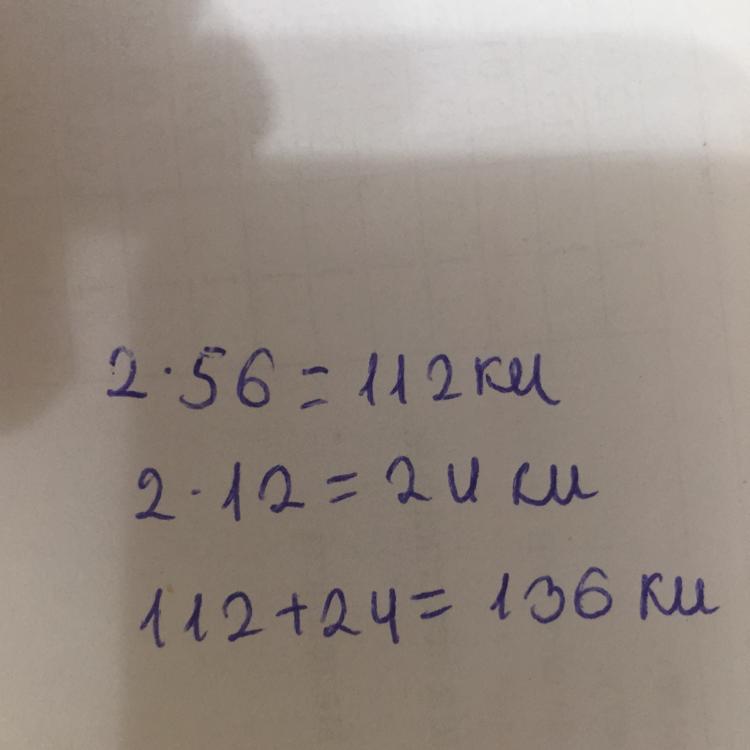 2·56=112км
2·12=24 км
112+24=136 км